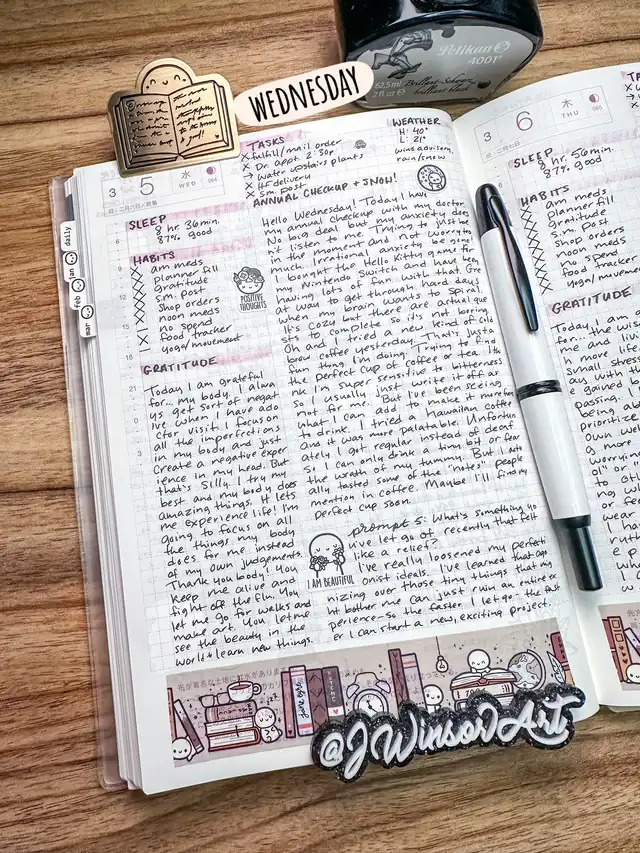 Pelikan
4001
62.5ml Brillant-Schwarz
2 fl oz brilliant black
WEDNESDAY
daily
jan
feb
mar
3 5 水
WED 064
TASKS
x fulfill/mail order
x Dr. appt. 2:30p
x water upstairs plants
x HF delivery
x s.m. post
WEATHER
H: 40°
L: 21°
wind advisory,
rain/snow
SLEEP
8 hr 36 min.
87% good
HABITS
am meds
planner fill
gratitude
s.m. post
shop orders
noon meds
no spend
food tracker
yoga/movement
POSITIVE
THOUGHTS
GRATITUDE
Today I am grateful
for... my body. I alwa
ys get sort of negat
ive when I have a do
ctor visit. I focus on
all the imperfections
in my body and just
create a negative exper
ience in my head. But
that's silly. I try my
best and my body does
amazing things. It lets
me experience life! I'm
going to focus on all
the things my body
does for me instead
of my own judgements.
Thank you body! You
keep me alive and
fight off the flu. You
let me go for walks and
make art. You let me
see the beauty in the
world & learn new things.
ANNUAL CHECKUP + SNOW!
Hello Wednesday! Today I have
my annual checkup with my doctor.
No big deal but my anxiety does
n't listen to me. Trying to just be
in the moment and not worry too
much. Irrational anxiety be gone!
I bought the Hello Kitty game for
my Nintendo Switch and have been
having lots of fun with that. Gre
at way to get through hard days
when my brain wants to spiral.
It's cozy but there are actual que
sts to complete so it's not boring.
Oh and I tried a new kind of cold
brew coffee yesterday. That's just a
fun thing I'm doing. Trying to find
the perfect cup of coffee or tea. I th
nk I'm super sensitive to bitterness
so I usually just write it off as
not for me. But I've been seeing
what I can add to make it more fun
to drink. I tried a Hawaiian coffee
and it was more palatable. Unfortun
ately I got regular instead of decaf
so I can only drink a tiny bit or fear
the wrath of my tummy. But I act
ually tasted some of the "notes" people
mention in coffee. Maybe I'll find my
perfect cup soon.
I AM BEAUTIFUL
prompt 5: What's something yo
u've let go of recently that felt
like a relief?
I've really loosened my perfecti
onist ideals. I've learned that ago
nizing over those tiny things that mig
ht bother me can just ruin an entire ex
perience—so the faster I let go the fast
er I can start a new, exciting project.
jane eyre
@JWinsorArt
3 6 木
THU
SLEEP
8 hr. 56 min.
HABITS
am meds
planner fill
gratitude
s.m. post
shop orders
noon meds
no spend
food tracker
yoga/movement
GRATITUDE